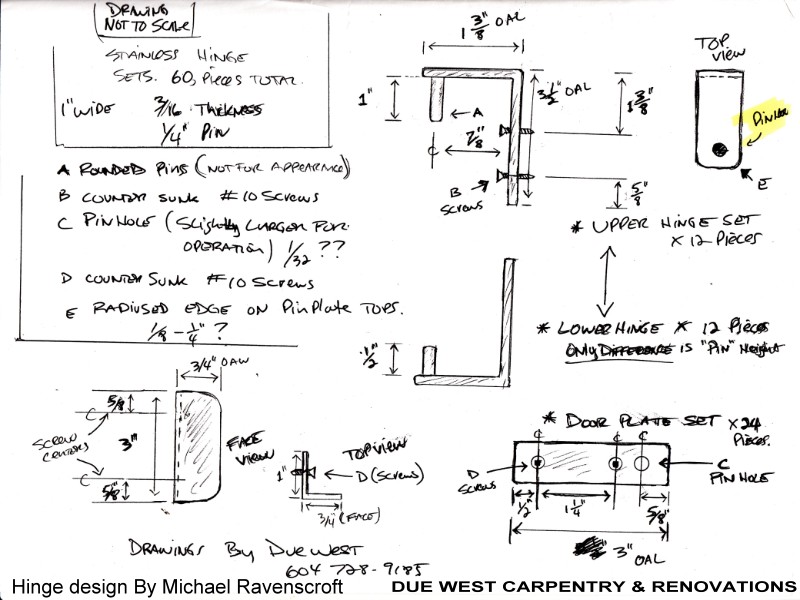 DRAWING
NOT TO SCALE
STAINLESS HINGE
SETS. 60, PIECES TOTAL.
1" WIDE 3/16 THICKNESS
1/4" PIN
A ROUNDED PINS (NOT FOR APPEARANCE)
B COUNTER SUNK #10 SCREWS
C PIN HOLE (SLIGHTLY LARGER FOR
OPERATION) 1/32 ??
D COUNTER SUNK #10 SCREWS
E RADIUSED EDGE ON PIN PLATE TOPS.
1/8 - 1/4" ?
1 3/8" OAL
1"
A
C
7/8"
B
SCREWS
3 1/2" OAL
1 3/8"
5/8"
TOP
VIEW
PIN HOLE
E
* UPPER HINGE SET
X 12 PIECES
* LOWER HINGE X 12 PIECES
ONLY DIFFERENCE IS "PIN" HEIGHT
1/2"
3/4" OAW
5/8"
C
SCREW
CENTERS
3"
C
5/8"
FACE
VIEW
TOP VIEW
1"
D (SCREWS)
3/4" (FACE)
* DOOR PLATE SET X 24
PIECES.
C C C
D
SCREWS
C
PIN HOLE
1/2" 1 1/4" 5/8"
3" OAL
DRAWINGS BY DUE WEST
604 728-9185
Hinge design By Michael Ravenscroft
DUE WEST CARPENTRY & RENOVATIONS